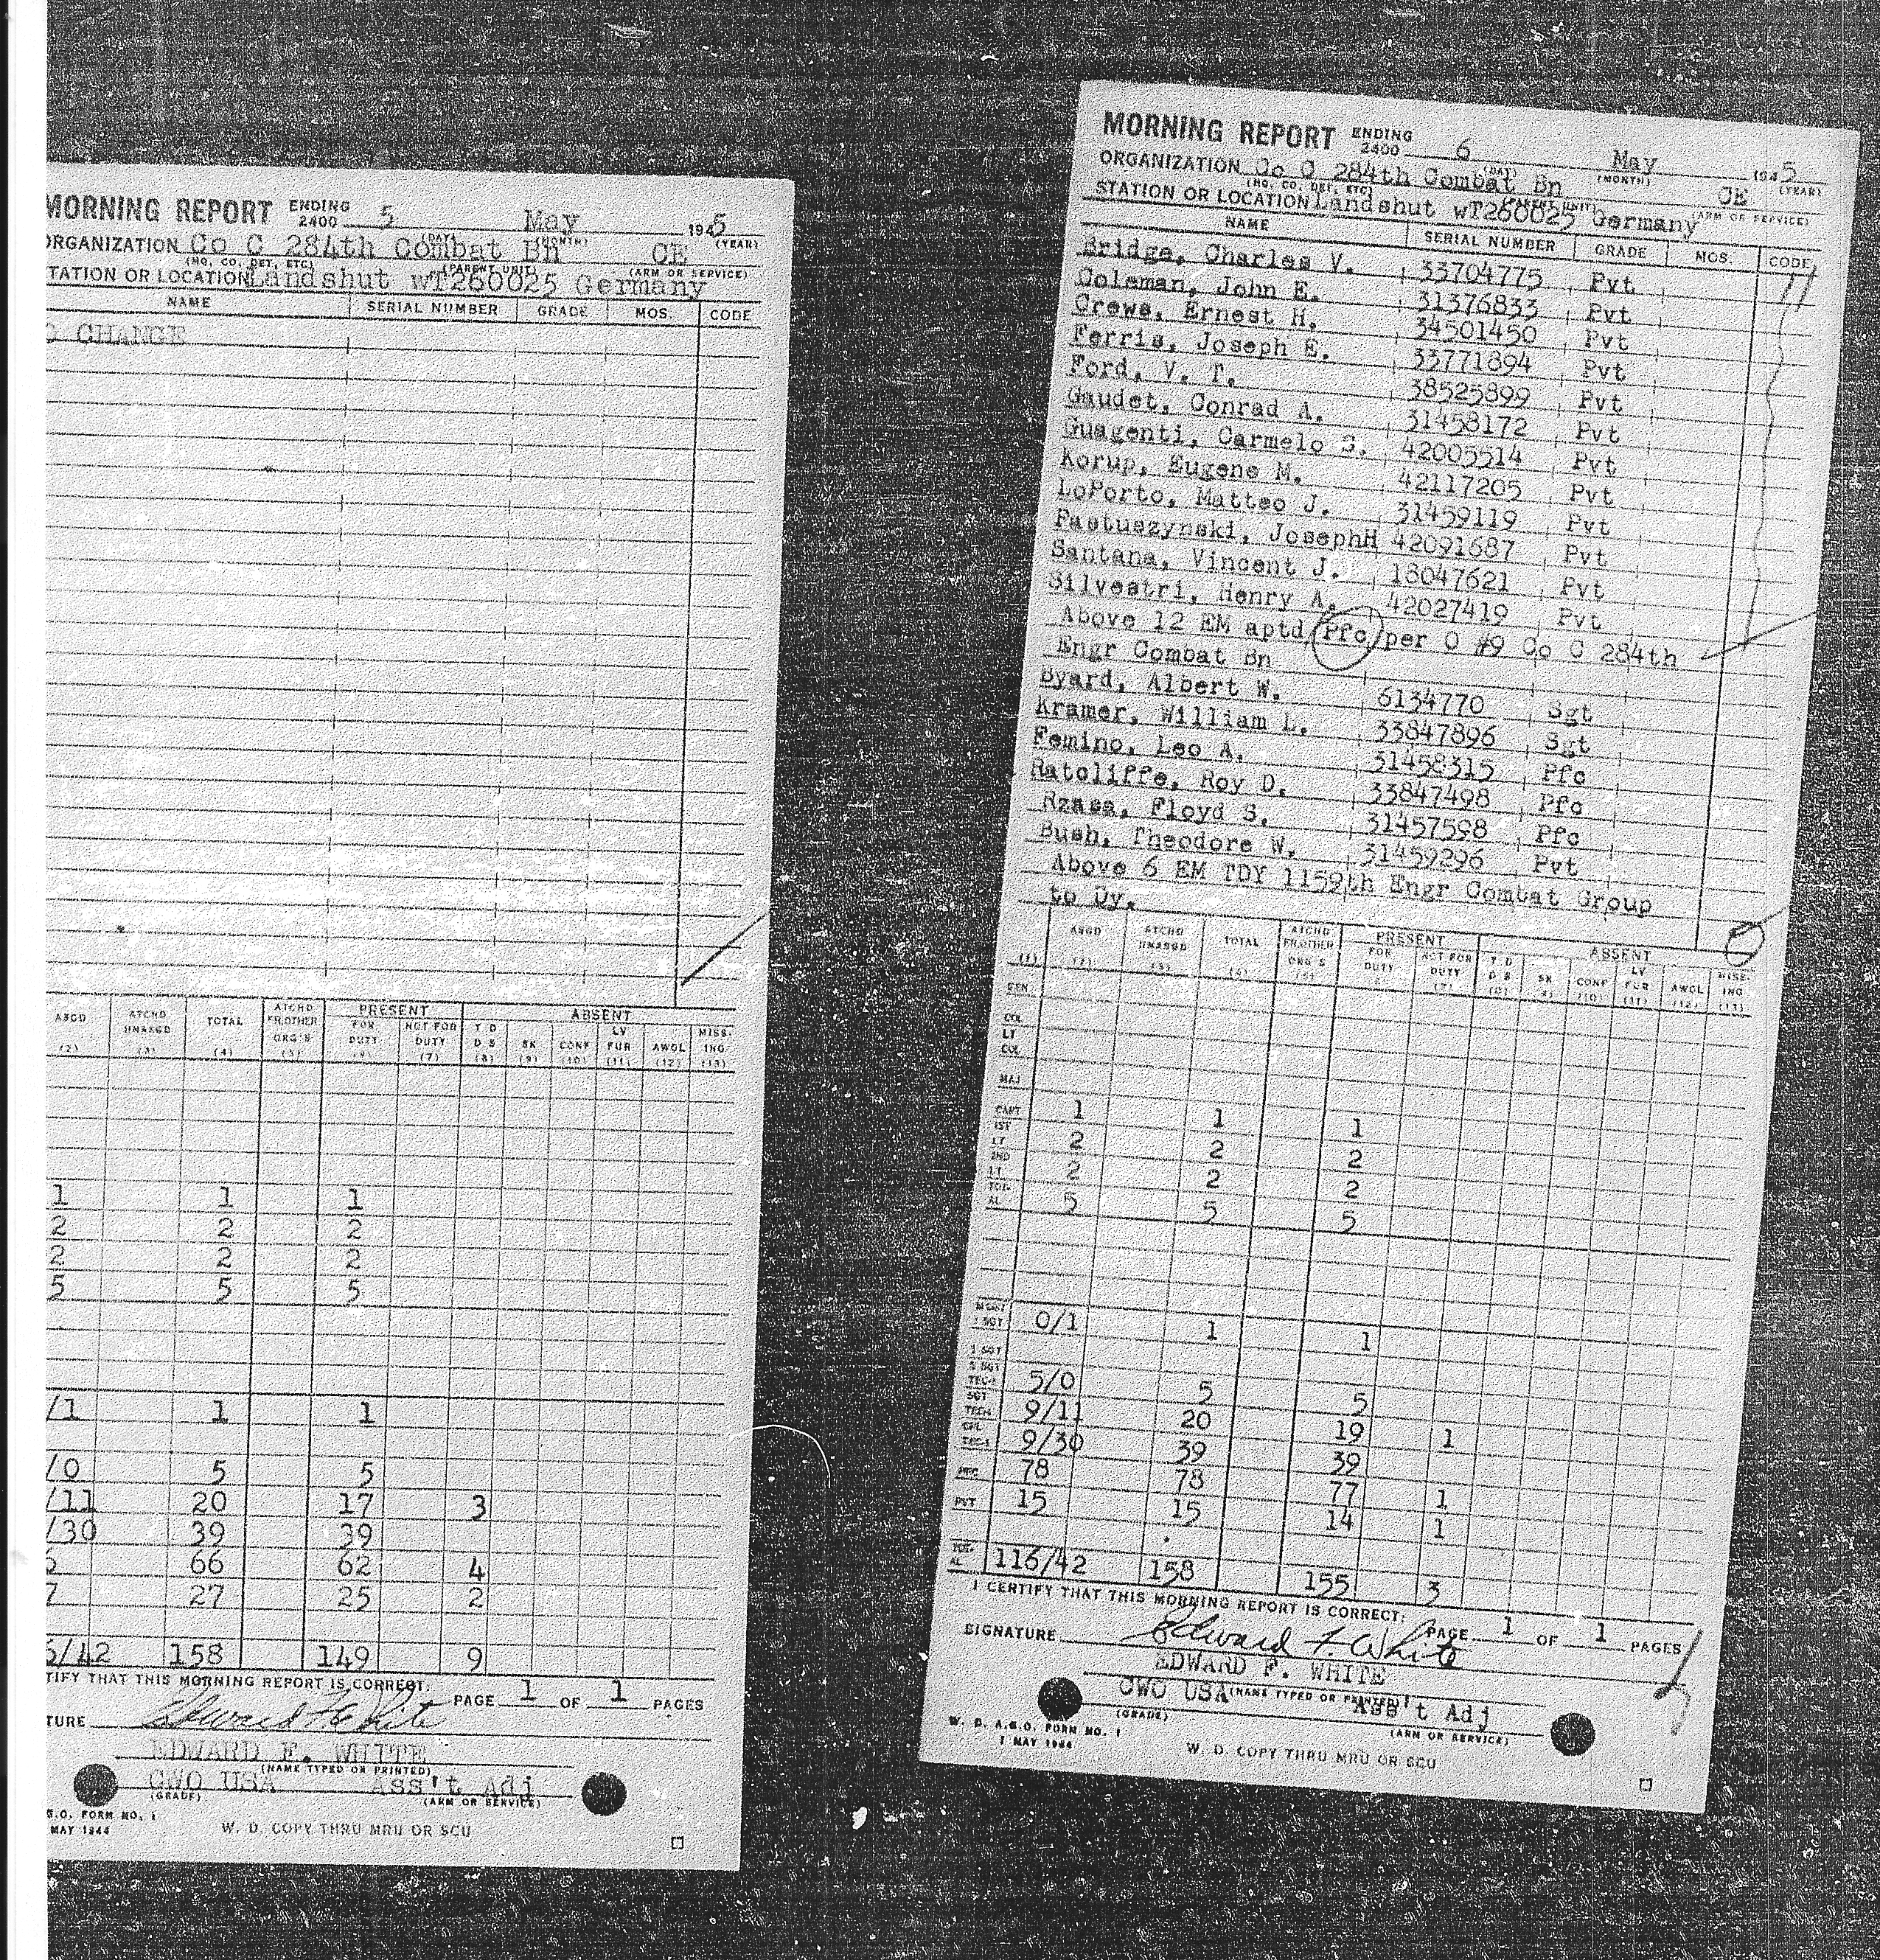 MORNING REPORT ENDING 2400 5 May 1945
(DAY) (MONTH) (YEAR)
ORGANIZATION Co C 284th Combat Bn CE
(HQ. CO. DET. ETC) (PARENT UNIT) (ARM OR SERVICE)
TATION OR LOCATION Landshut wT260025 Germany
NAME SERIAL NUMBER GRADE MOS. CODE
O CHANGE
ASGD ATCHD UNASGD TOTAL ATCHD FR.OTHER ORG'S PRESENT ABSENT
FOR DUTY NOT FOR DUTY T D D S SK CONF LV FUR AWOL MISS- ING
(2) (3) (4) (5) (6) (7) (8) (9) (10) (11) (12) (13)
1 1 1
2 2 2
2 2 2
5 5 5
/1 1 1
/0 5 5
/11 20 17 3
/30 39 39
6 66 62 4
7 27 25 2
6/42 158 149 9
TIFY THAT THIS MORNING REPORT IS CORRECT.
PAGE 1 OF 1 PAGES
TURE Edward F White
EDWARD F. WHITE
(NAME TYPED OR PRINTED)
CWO USA Ass't Adj
(GRADE) (ARM OR SERVICE)
G.O. FORM NO. 1
MAY 1944
W. D. COPY THRU MRU OR SCU
MORNING REPORT ENDING 2400 6 May 1945
(DAY) (MONTH) (YEAR)
ORGANIZATION Co C 284th Combat Bn CE
(HQ. CO. DET. ETC) (PARENT UNIT) (ARM OR SERVICE)
STATION OR LOCATION Landshut wT260025 Germany
NAME SERIAL NUMBER GRADE MOS. CODE
Bridge, Charles V. 33704775 Pvt
Coleman, John E. 31376833 Pvt
Crews, Ernest H. 34501450 Pvt
Ferris, Joseph E. 33771894 Pvt
Ford, V. T. 38525899 Pvt
Gaudet, Conrad A. 31458172 Pvt
Guagenti, Carmelo S. 42005514 Pvt
Korup, Eugene M. 42117205 Pvt
LoPorto, Matteo J. 31459119 Pvt
Pastuszynski, JosephH 42091687 Pvt
Santana, Vincent J. 18047621 Pvt
Silvestri, Henry A. 42027419 Pvt
Above 12 EM aptd Pfc per O #9 Co C 284th
Engr Combat Bn
Byard, Albert W. 6134770 Sgt
Kramer, William L. 33847896 Sgt
Femino, Leo A. 31458315 Pfc
Ratcliffe, Roy D. 33847498 Pfc
Rzasa, Floyd S. 31457598 Pfc
Bush, Theodore W. 31459296 Pvt
Above 6 EM TDY 1159th Engr Combat Group
to Dy.
ASGD ATCHD UNASGD TOTAL ATCHD FR.OTHER ORG'S PRESENT ABSENT
FOR DUTY NOT FOR DUTY T D D S SK CONF LV FUR AWOL MISS- ING
(1) (2) (3) (4) (5) (7) (8) (9) (10) (11) (12) (13)
GEN
COL
LT COL
MAJ
CAPT 1 1 1
1ST LT 2 2 2
2ND LT 2 2 2
TOT- AL 5 5 5
M SGT 1 SGT 0/1 1 1
T SGT
S SGT TEC-3 5/0 5 5
SGT TEC-4 9/11 20 19 1
CPL TEC-5 9/30 39 39
PFC 78 78 77 1
PVT 15 15 14 1
TOT- AL 116/42 158 155 3
I CERTIFY THAT THIS MORNING REPORT IS CORRECT.
PAGE 1 OF 1 PAGES
SIGNATURE Edward F. White
EDWARD F. WHITE
(NAME TYPED OR PRINTED)
CWO USA Ass't Adj
(GRADE) (ARM OR SERVICE)
W. D. A.G.O. FORM NO. 1
1 MAY 1944
W. D. COPY THRU MRU OR SCU